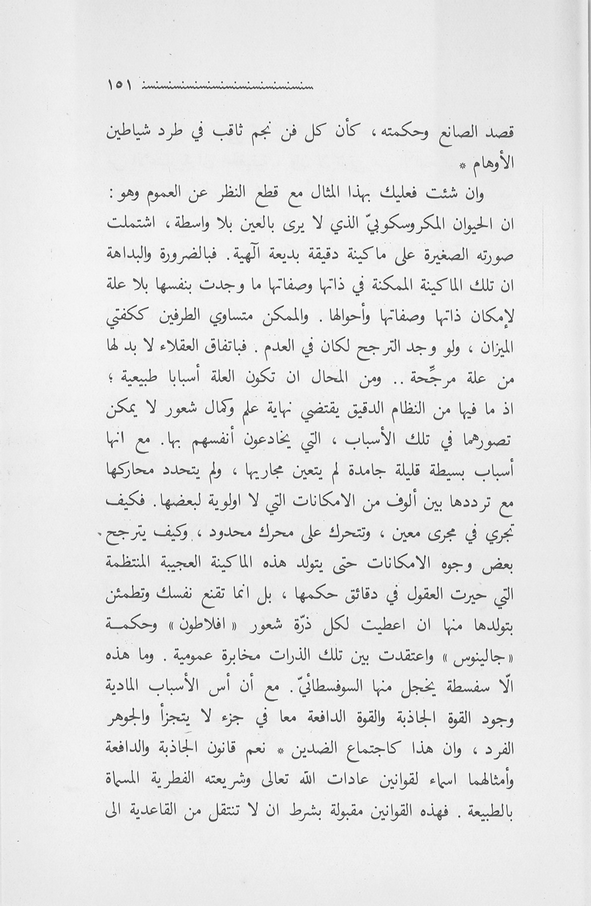 ١٥١
قصد الصانع وحكمته ، كأن كل فن نجم ثاقب في طرد شياطين
الأوهام *
وان شئت فعليك بهذا المثال مع قطع النظر عن العموم وهو :
ان الحيوان المكروسكوبيّ الذي لا يرى بالعين بلا واسطة ، اشتملت
صورته الصغيرة على ماكينة دقيقة بديعة آلهية . فبالضرورة والبداهة
ان تلك الماكينة الممكنة في ذاتها وصفاتها ما وجدت بنفسها بلا علة
لإمكان ذاتها وصفاتها وأحوالها . والممكن متساوي الطرفين ككفتي
الميزان ، ولو وجد الترجح لكان في العدم . فباتفاق العقلاء لا بد لها
من علة مرجِّحة .. ومن المحال ان تكون العلة أسبابا طبيعية ؛
اذ ما فيها من النظام الدقيق يقتضي نهاية علم وكمال شعور لا يمكن
تصورهما في تلك الأسباب ، التي يخادعون أنفسهم بها . مع انها
أسباب بسيطة قليلة جامدة لم يتعين مجاريها ، ولم يتحدد محاركها
مع ترددها بين ألوف من الامكانات التي لا اولوية لبعضها . فكيف
تجري في مجرى معين ، وتتحرك على محرك محدود ، وكيف يترجح
بعض وجوه الامكانات حتى يتولد هذه الماكينة العجيبة المنتظمة
التي حيرت العقول في دقائق حكمها ، بل انما تقنع نفسك وتطمئن
بتولدها منها ان اعطيت لكل ذرّة شعور « افلاطون » وحكمــة
« جالينوس » واعتقدت بين تلك الذرات مخابرة عمومية . وما هذه
الّا سفسطة يخجل منها السوفسطائيّ . مع أن أس الأسباب المادية
وجود القوة الجاذبة والقوة الدافعة معا في جزء لا يتجزأ والجوهر
الفرد ، وان هذا كاجتماع الضدين * نعم قانون الجاذبة والدافعة
وأمثالهما اسماء لقوانين عادات الله تعالى وشريعته الفطرية المسماة
بالطبيعة . فهذه القوانين مقبولة بشرط ان لا تنتقل من القاعدية الى